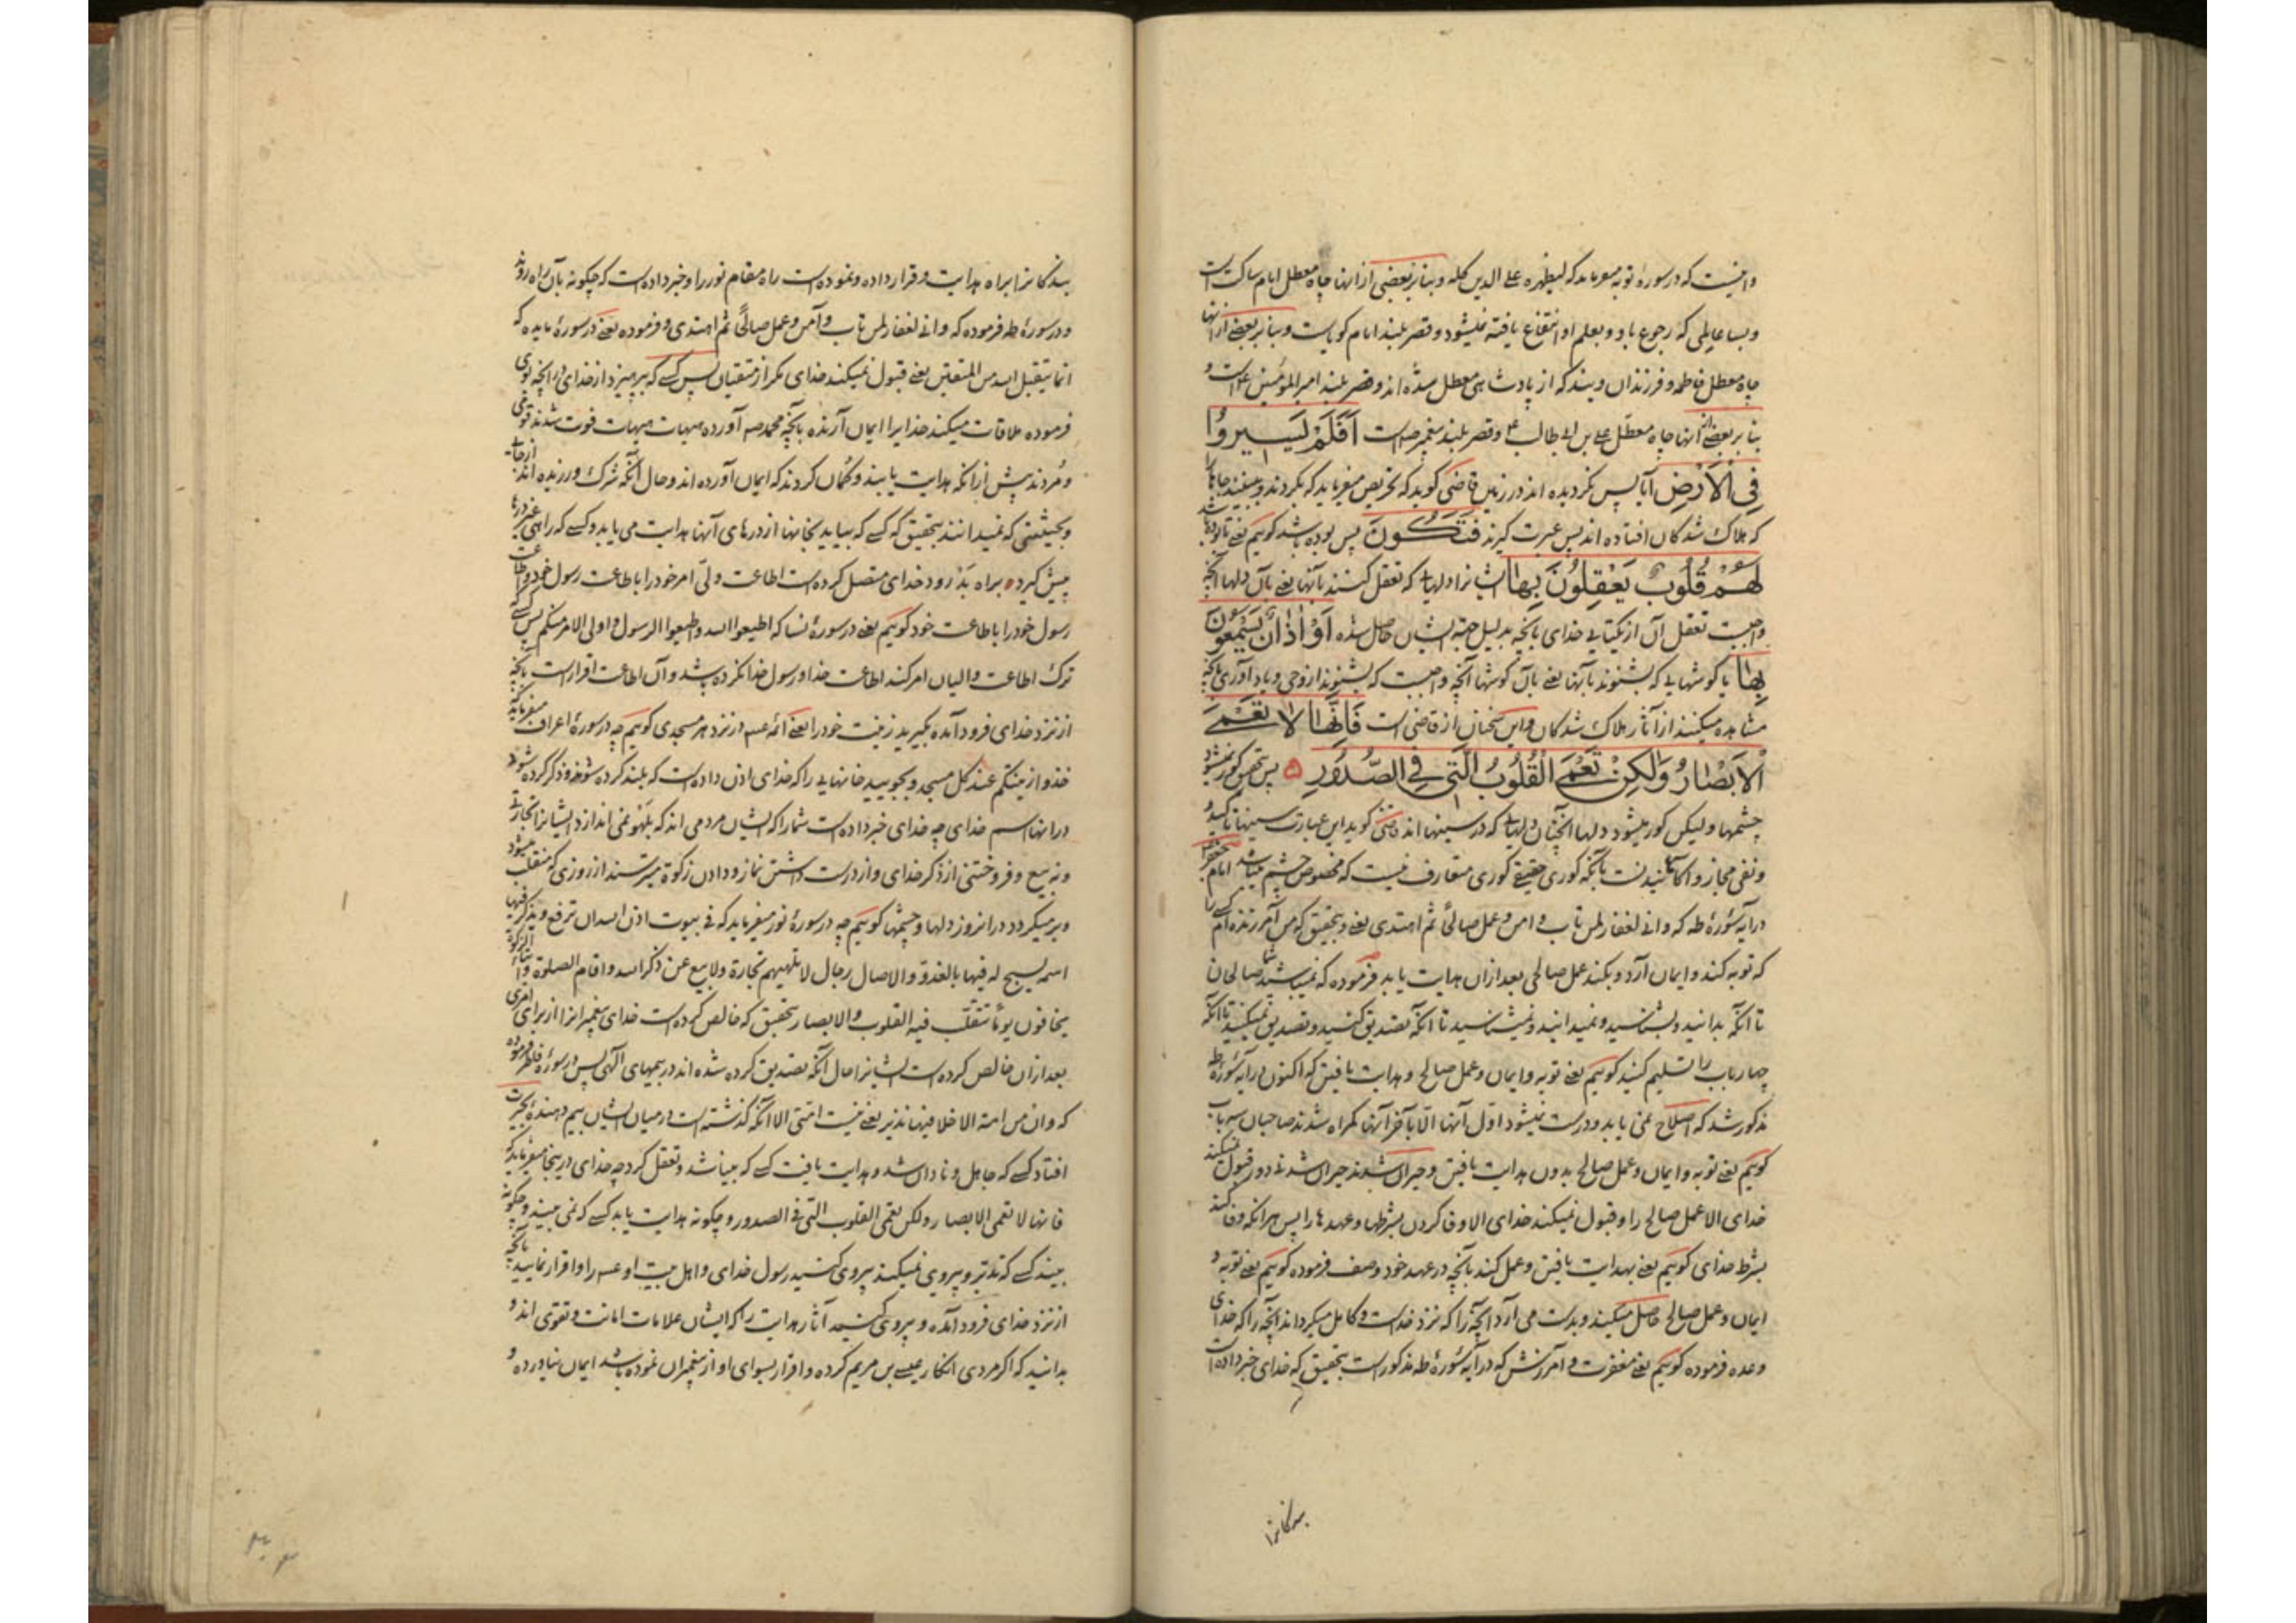 و اینست که در سورهٔ توبه میفرماید که لیظهره علی الدین کله و بنابر بعضی از انها چاه معطل امام ساکت است
و بسا عالمی که رجوع باو و بعلم او انتفاع یافته نمیشود و قصر بلند امام کویاست و بنا بر بعضی از انها
چاه معطل فاطمه و فرزندان ویند که از پادشاهی معطل شده اند و قصر بلند امیر المؤمنین است و
بنا بر بعضی از انها چاه معطل علی بن ابی طالب و قصر بلند پیغمبر است اَفَلَمْ یَسیرُوا
فِی الْاَرْضِ آیا پس نکردیده اند در زمین قاضی کوید که تحریص میفرماید که بکردند و ببینند جاها
که هلاک شدکان افتاده اند پس عبرت کیرند فَتَکُونَ پس بوده باشد کوییم یعنی تا بوده باشد
لَهُمْ قُلُوبٌ یَعْقِلُونَ بِها ایشانرا دلهایی که تعقل کنند بآنها یعنی بآن دلها آنچه
واجبست تعقل آن از یکتایی خدای بآنچه بدلیل جهة ایشان حاصل شده اَوْ اٰذانٌ یَسْمَعُونَ
بِها یا کوشهایی که بشنوند بآنها یعنی بآن کوشها آنچه واجبست که بشنوند از وحی و یاد آوری بآنچه
مشاهده میکنند از آثار هلاک شدکان و این سخنان از قاضی است فَاِنَّها لا تَعْمَی
الْاَبْصارُ وَلٰکِنْ تَعْمَی الْقُلُوبُ الَّتی فِی الصُّدُورِ پس بتحقیق کور نمیشود
چشمها و لیکن کور میشود دلها آنچنان دلهایی که در سینها اند قاضی کوید این عبارت سینها تاکید و
و نفی مجاز و آکاهانیدنست بآنکه کوری حقیقی کوری متعارف نیست که مخصوص چشم میباشد امام جعفر
در آیه سورهٔ طه که و انی لغفار لمن تاب و امن و عمل صالحًا ثم اهتدی یعنی و بتحقیق که من آمرزنده ام کسی را
که توبه کند و ایمان آرد و بکند عمل صالحی بعد از ان هدایت یابد فرموده که نمیباشید شما صالحان
تا آنکه بدانید و بشناسید و نمیدانید و نمیشناسید تا آنکه تصدیق کنید و تصدیق نمیکنید تا آنکه
چهار باب را تسلیم کنید کوییم یعنی توبه و ایمان و عمل صالح و هدایت یافتن که اکنون در آیه سورهٔ طه
مذکور شد که اصلاح نمی یابد و درست نمیشود اول آنها الّا بآخر آنها کمراه شدند صاحبان سه باب
کوییم یعنی توبه و ایمان و عمل صالح بدون هدایت یافتن و حیران شدند حیران شدنی دور قبول نمیکند
خدای الا عمل صالح را و قبول نمیکند خدای الا وفا کردن بشرطها و عهدها را پس هر آنکه وفا کند
بشرط خدای کوییم یعنی بهدایت یافتن و عمل کند بآنچه در عهد خود وصف فرموده کوییم یعنی توبه و
ایمان و عمل صالح حاصل میکند و بدست می آرد آنچه را که نزد خداست و کامل میکرداند آنچه را که خدای
وعده فرموده کوییم یعنی مغفرت و آمرزش که در آیه سورهٔ طه مذکور است بتحقیق که خدای خبر داده است
بندکانرا
بندکانرا براه هدایت و قرار داده و نموده است راه مقام نور را و خبر داده است که چکونه بآن راه روند
و در سورهٔ طه فرموده که و انی لغفار لمن تاب و آمن و عمل صالحًا ثم اهتدی و فرموده یعنی در سورهٔ مایده که
انما یتقبل الله من المتقین یعنی قبول نمیکند خدای مکر از متقیان پس کسی که بپرهیزد از خدای در آنچه او را
فرموده ملاقات میکند خدایرا ایمان آرنده بآنچه محمد صه آورده هیهات هیهات فوت شدند قومی
و مردند پیش از آنکه هدایت یابند و کمان کردند که ایمان آورده اند و حال آنکه شرک ورزیده اند از جایی
و بحیثیتی که نمیدانند بتحقیق که کسی که بیاید بخانها از درهای آنها هدایت می یابد و کسی که راهی غیر درها
پیش کیرد براه بد رود خدای متصل کرده است اطاعت ولیّ امر خود را باطاعت رسول خود و اطاعت
رسول خود را باطاعت خود کوییم یعنی در سورهٔ نسا که اطیعوا الله و اطیعوا الرسول و اولی الامر منکم پس کسی که
ترک اطاعت والیان امر کند اطاعت خدا و رسول خدا نکرده باشد و آن اطاعت اقرار است بآنچه
از نزد خدای فرود آمده بکیرید زینت خود را یعنی ائمه عسم در نزد هر مسجدی کوییم چه در سورهٔ اعراف میفرماید
خذوا زینتکم عند کل مسجد و بجویید خانهایی را که خدای اذن داده است که بلند کرده شود و ذکر کرده شود
در انها اسم خدای چه خدای خبر داده است شما را که ایشان مردمی اند که بلهو نمی اندازد ایشانرا تجارتی
و نه بیع و فروختنی از ذکر خدای و از درست داشتن نماز و دادن زکوة میترسند از روزی که منقلب میشود
و برمیکردد در انروز دلها و چشمها کوییم چه در سورهٔ نور میفرماید که فی بیوت اذن الله ان ترفع و یذکر فیها
اسمه یسبح له فیها بالغدو والاصال رجال لا تلهیهم تجارة ولا بیع عن ذکر الله و اقام الصلوة و ایتاء الزکوة
یخافون یومًا تتقلّب فیه القلوب والابصار بتحقیق که خالص کرده است خدای پیغمبرانرا از برای امری
بعد از ان خالص کرده است ایشانرا حال آنکه تصدیق کرده شده اند در بیمهای الهی پس در سورهٔ فاطر فرموده
که و ان من امة الا خلا فیها نذیر یعنی نیست امتی الا آنکه کذشته است در میان ایشان بیم دهندهٔ بحیرت
افتاد کسی که جاهل و نادان شد و هدایت یافت کسی که بینا شد و تعقل کرد چه خدای در ینجا میفرماید که
فانها لا تعمی الابصار ولکن تعمی القلوب التی فی الصدور و چکونه هدایت یابد کسی که نمی بیند و چکونه
بیند کسی که تدبّر و پیروی نمیکند پیروی کنید رسول خدای و اهل بیت او عسم را و اقرار نمایید بآنچه
از نزد خدای فرود آمده و پیروی کنید آثار هدایت را که ایشان علامات امانت و تقوی اند و
بدانید که اکر مردی انکار عیسی بن مریم کرده و اقرار بسوای او از پیغمبران نموده باشد ایمان نیاورده و